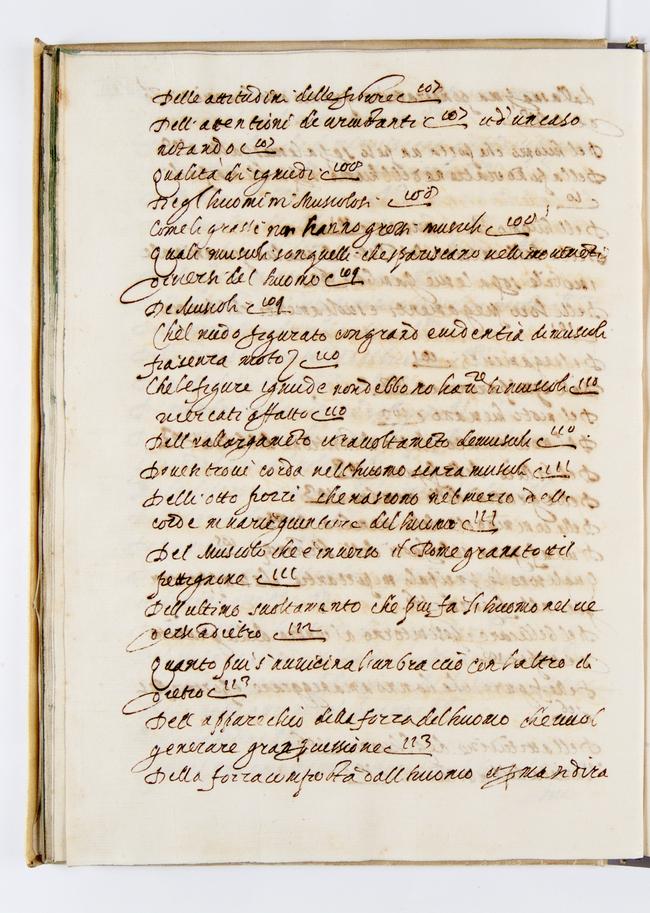 Delle attitudini delle figure 107
Dell'attentioni de circustanti 107 ad un caso
notando 107
qualità di ignudi 108
Degl'huomini Musculosi 108
Come li grassi non hanno grossi musculi 108
Quali musculi son quelli che spariscano nelli movimenti
diversi del huomo 109
De Musculi 109
Che'l nudo figurato con grand evidentia di musculi
fia senza moto 110
Che le figure ignude non debbono haver li musculi 110
ricercati affatto 110
Dell'rallargameto et racoltameto de musculi 110
Dove si trovi corda nell'huomo senza musculi 111
Delli otto pezzi che nascono nel mezzo delle
corde in varie giunture del huomo 111
Del Musculo che è inverso il Pome granato et il
pettignone 111
Dell'ultimo svoltamento che può far l'huomo nel ve
dersi adietro 112
Quanto può s'avvicina l'un braccio con l'altro di
dietro 113
Dell'apparechio della forza del huomo che vuol
generare gran percussione 113
Della forza composta dall'huomo et prima si dira